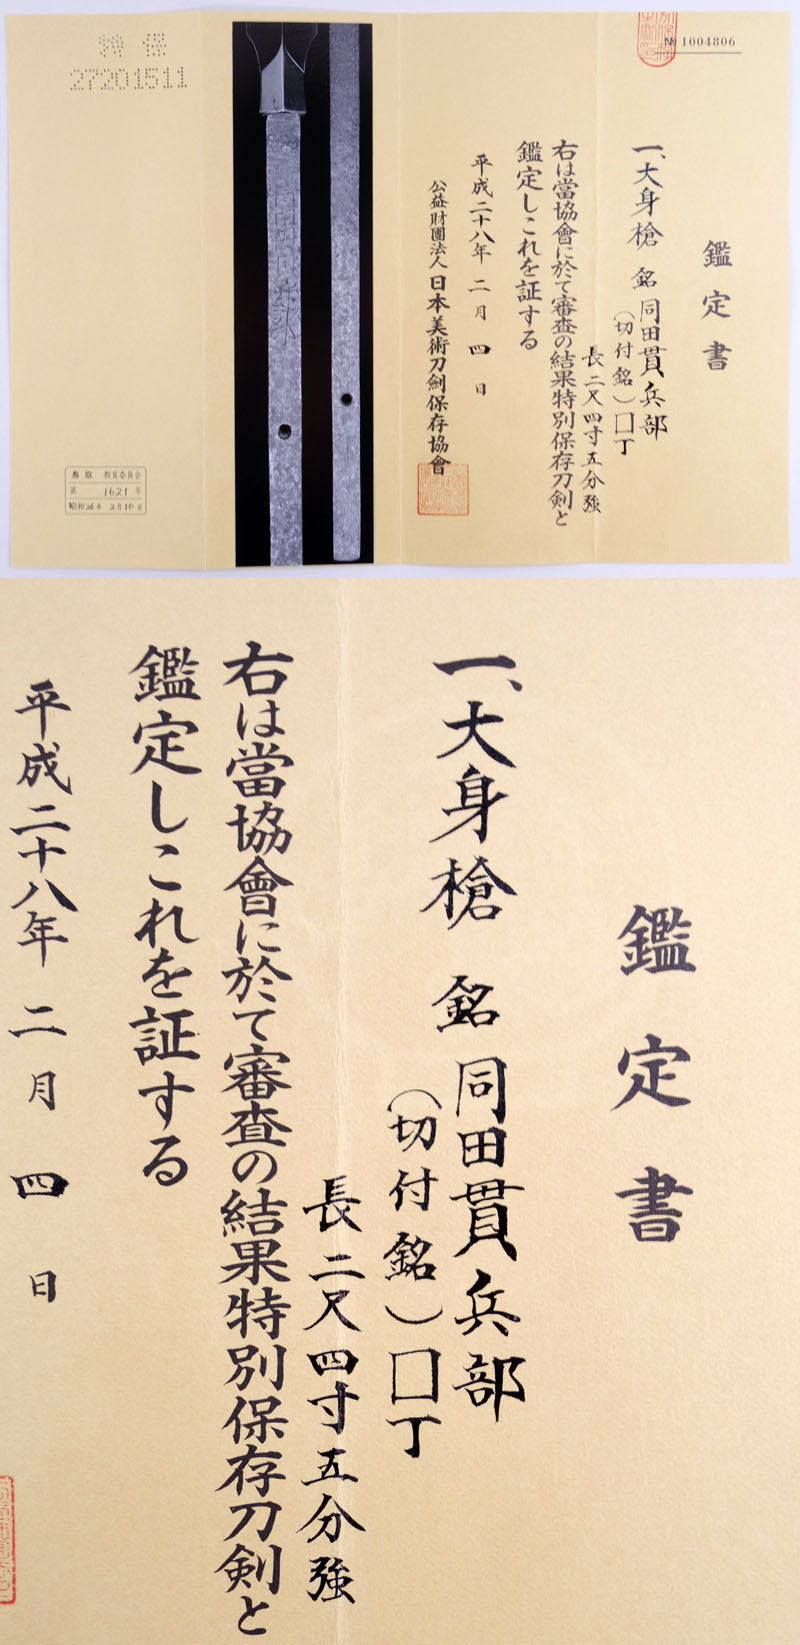 № 1004806
鑑定書
一、大身槍 銘 同田貫兵部
（切付銘）囗丁
長二尺四寸五分強
右は當協會に於て審査の結果特別保存刀剣と
鑑定しこれを証する
平成二十八年 二月 四日
公益財團法人 日本美術刀劍保存協會
特保
27201511
鳥取 教育委員会
第 1621 号
昭和26年 2月10日
鑑定書
一、大身槍 銘 同田貫兵部
（切付銘）囗丁
長二尺四寸五分強
右は當協會に於て審査の結果特別保存刀剣と
鑑定しこれを証する
平成二十八年 二月 四日